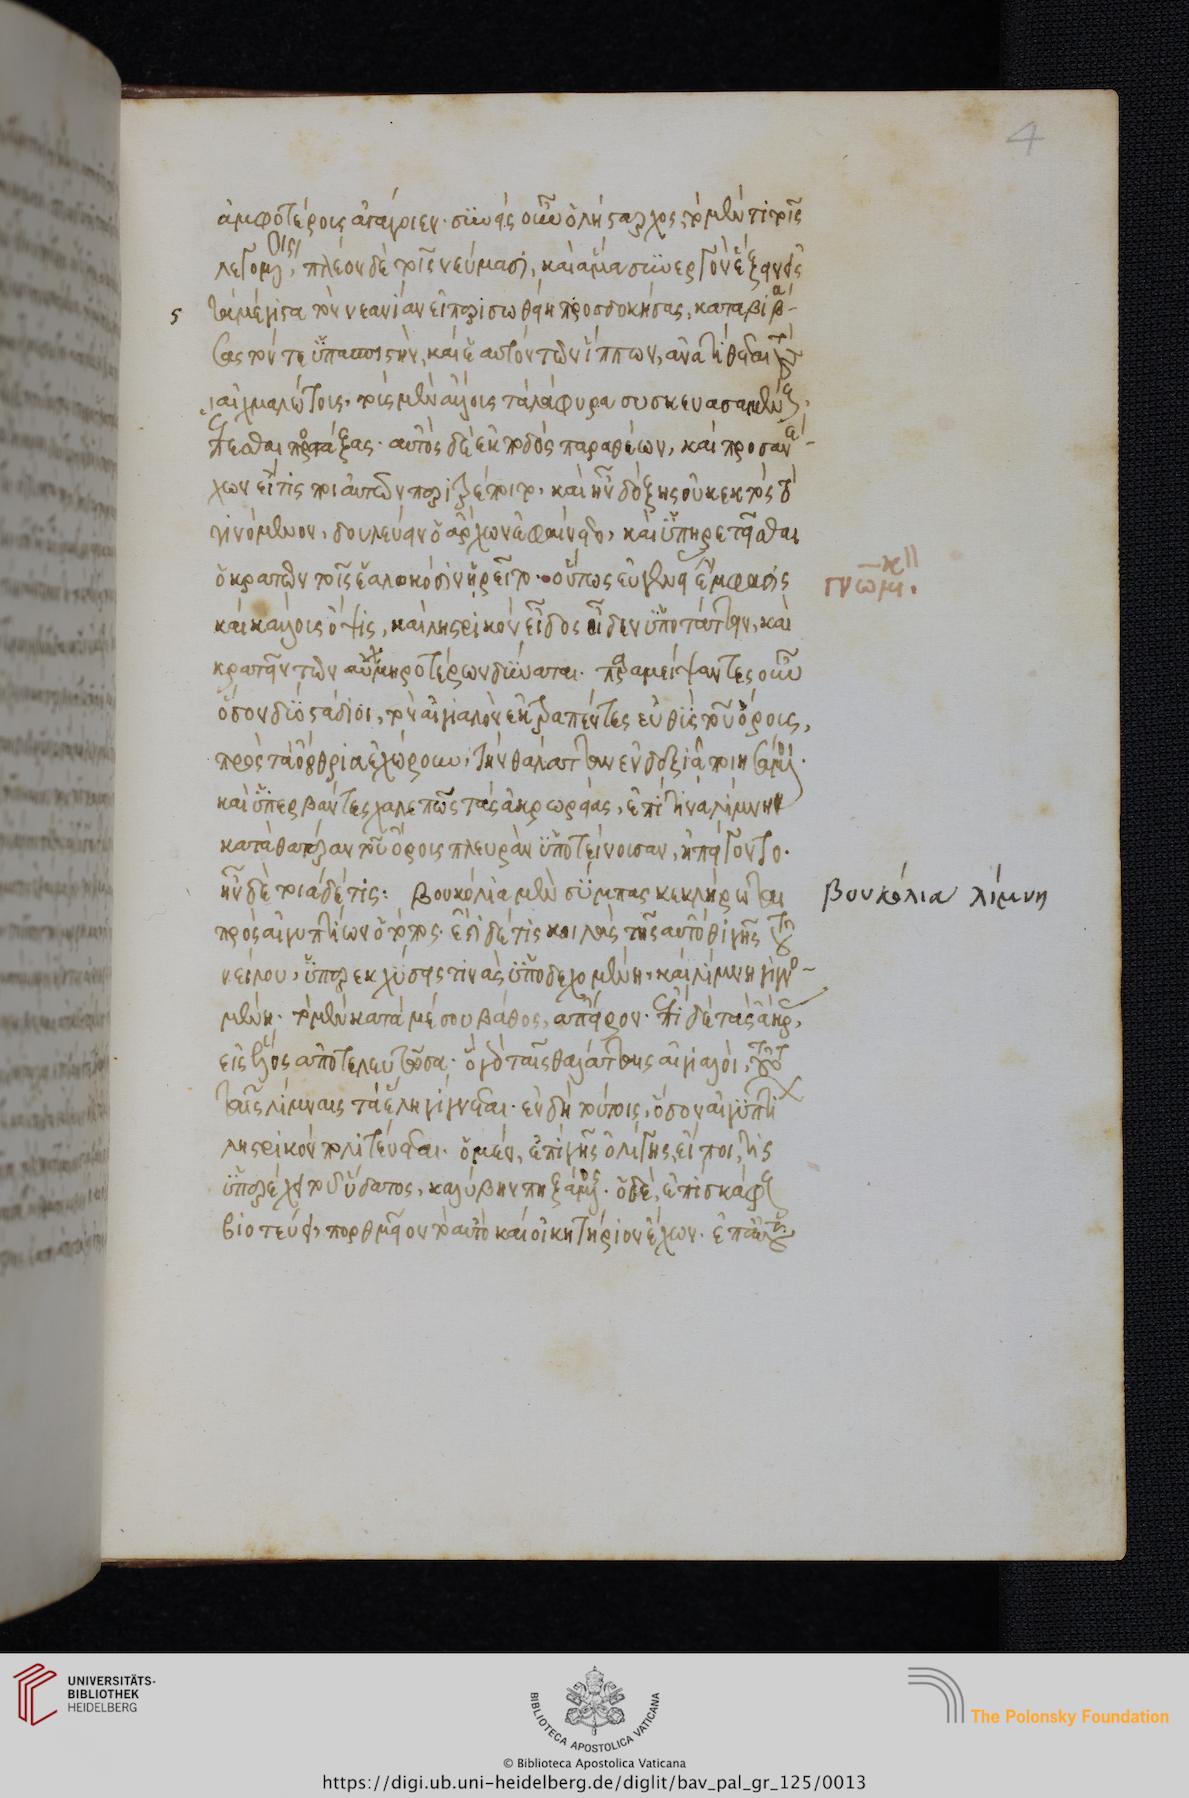 4
ἀμφοτέροις ἀπάγοιεν· συνεὶς οὖν ὁ λήσταρχος τὸ μέν τι τοῖς
λεγομένοις, πλέον δὲ τοῖς νεύμασι, καὶ ἅμα συνεργὸν ἕξειν εἰς
5 τὰ μέγιστα τὸν νεανίαν εἰ περισωθείη προσδοκήσας, καταβιβά-
σας τόν τε ὑπασπιστὴν, καὶ ἑαυτὸν τῶν ἵππων, ἀνατίθεται τοὺς
αἰχμαλώτους, τοῖς μὲν ἄλλοις τὰ λάφυρα συσκευασαμένοις,
ἕπεσθαι προστάξας· αὐτὸς δὲ ἐκ ποδὸς παραθέων, καὶ προσανέ-
χων εἴ τις που αὐτῶν περιτρέποιτο, καὶ ἦν δόξης οὐκ ἐκτὸς τὸ
γινόμενον, δουλεύειν ὁ ἄρχων ἐφαίνετο, καὶ ὑπηρετεῖσθαι
ὁ κρατῶν τοῖς ἑαλωκόσιν ᾑρεῖτο· οὕτως εὐγενείας ἔμφασις
καὶ κάλλους ὄψις, καὶ ληστρικὸν εἶδος οἶδεν ὑποτάττειν, καὶ
κρατεῖν τῶν αὐχμηροτέρων δύναται· παραμείψαντες οὖν
ὅσον δύο στάδιοι, τὸν αἰγιαλὸν ἐκτραπέντες εὐθὺς τοῦ ὄρους,
πρὸς τὰ ὄρθρια ἐχώρουν, τὴν θάλατταν ἐν δεξιᾷ ποιησάμενοι·
καὶ ὑπερβάντες χαλεπῶς τὰς ἀκρωρείας, ἐπί τινα λίμνην
κατὰ θατέραν τοῦ ὄρους πλευρὰν ὑποτείνουσαν, ἠπείγοντο·
ἦν δὲ τοιάδέ τις: Βουκόλια μὲν σύμπας κεκλήρωται
πρὸς αἰγυπτίων ὁ τόπος· ἔστι δέ τις κοιλὰς τῆς αὐτόθι γῆς τοῦ
νείλου, ὑπερεκχύσεις τινὰς ὑποδεχομένη, καὶ λίμνη γινο-
μένη· τὸ μὲν κατὰ μέσου βάθος, ἄπειρον· ἐπὶ δὲ τὰς ἄκρας,
εἰς ἕλος ἀποτελευτῶσα· ὃ γὰρ ταῖς θαλάτταις αἰγιαλοὶ, τοῦτο
ταῖς λίμναις τὰ ἕλη γίγνεται· ἐν δὴ τούτοις, ὅσον αἰγύπτιον
ληστρικὸν πολιτεύεται· ὁ μὲν, ἐπὶ γῆς ὀλίγης, εἴ που τὶς
ὑπερέχει τοῦ ὕδατος, καλύβην πηξάμενος· ὁ δὲ, ἐπὶ σκάφους
βιοτεύει, πορθμεῖον τὸ αὐτὸ καὶ οἰκητήριον ἔχων· ἐπὶ τούτου
γνωμικὸν
βουκόλια λίμνη
UNIVERSITÄTS-
BIBLIOTHEK
HEIDELBERG
BIBLIOTECA APOSTOLICA VATICANA
The Polonsky Foundation
© Biblioteca Apostolica Vaticana
https://digi.ub.uni-heidelberg.de/diglit/bav_pal_gr_125/0013